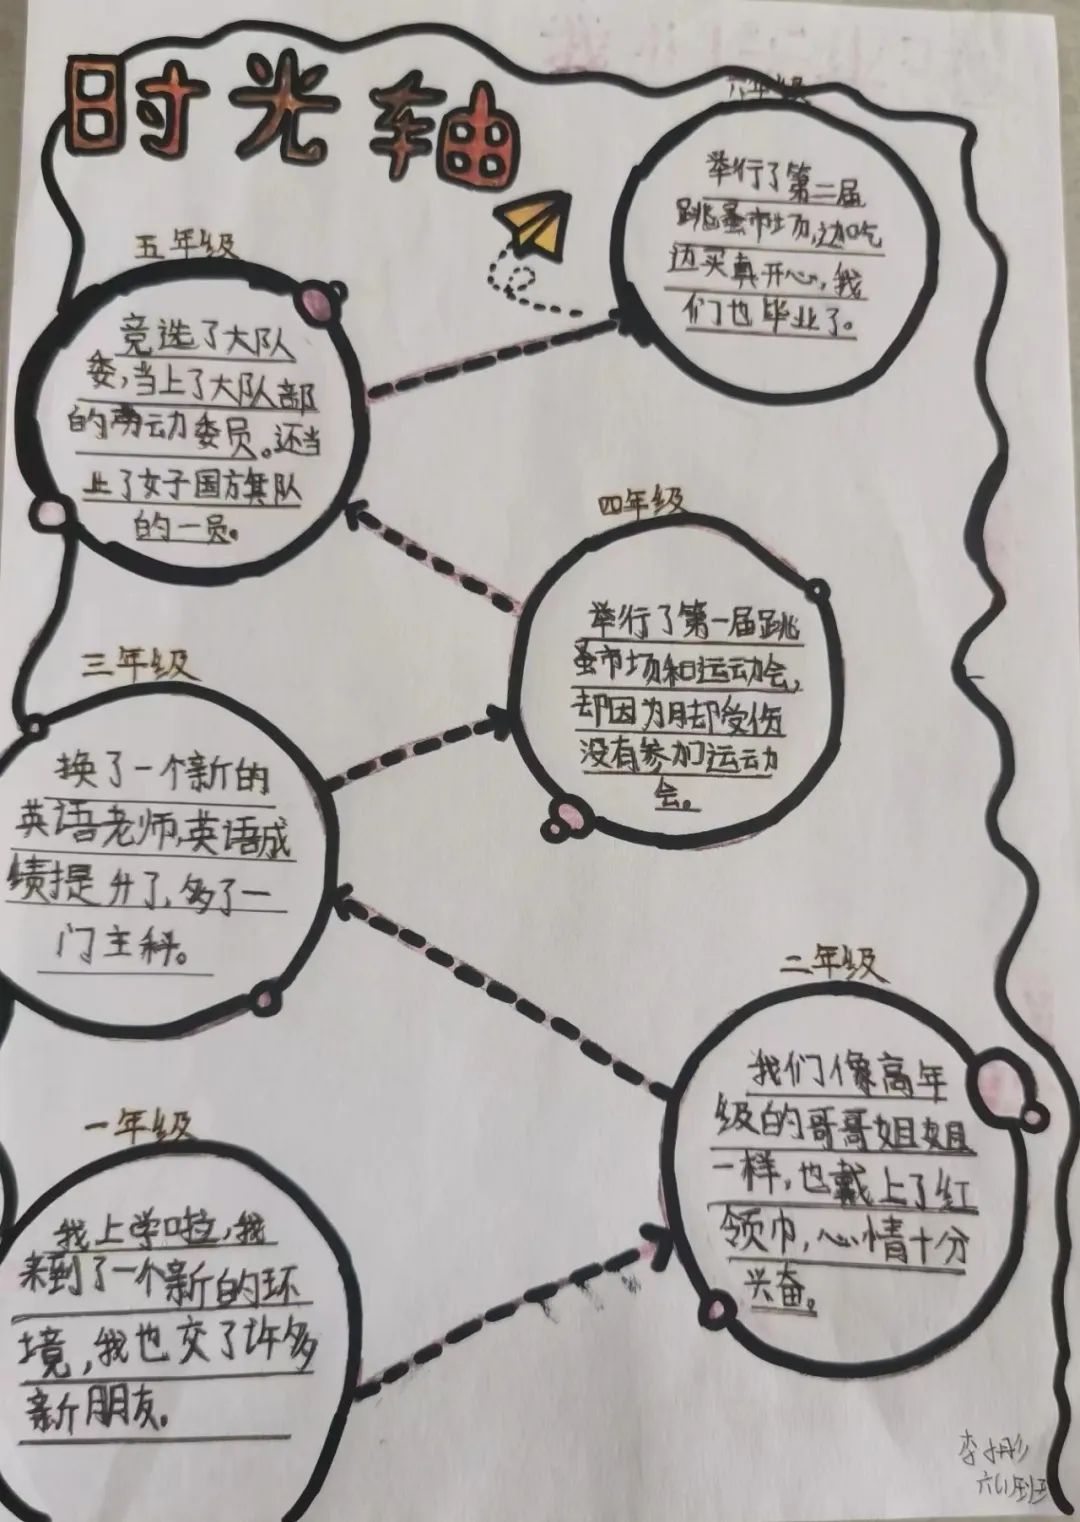 时光轴
六年级
举行了第二届
跳蚤市场,边吃
边买真开心,我
们也毕业了。
五年级
竞选了大队
委,当上了大队部
的劳动委员。还当
上了女子国旗队
的一员。
四年级
举行了第一届跳
蚤市场和运动会,
却因为脚受伤
没有参加运动
会。
三年级
换了一个新的
英语老师,英语成
绩提升了,多了一
门主科。
二年级
我们像高年
级的哥哥姐姐
一样,也戴上了红
领巾,心情十分
兴奋。
一年级
我上学啦,我
来到了一个新的环
境,我也交了许多
新朋友。
李彤
六(1)班